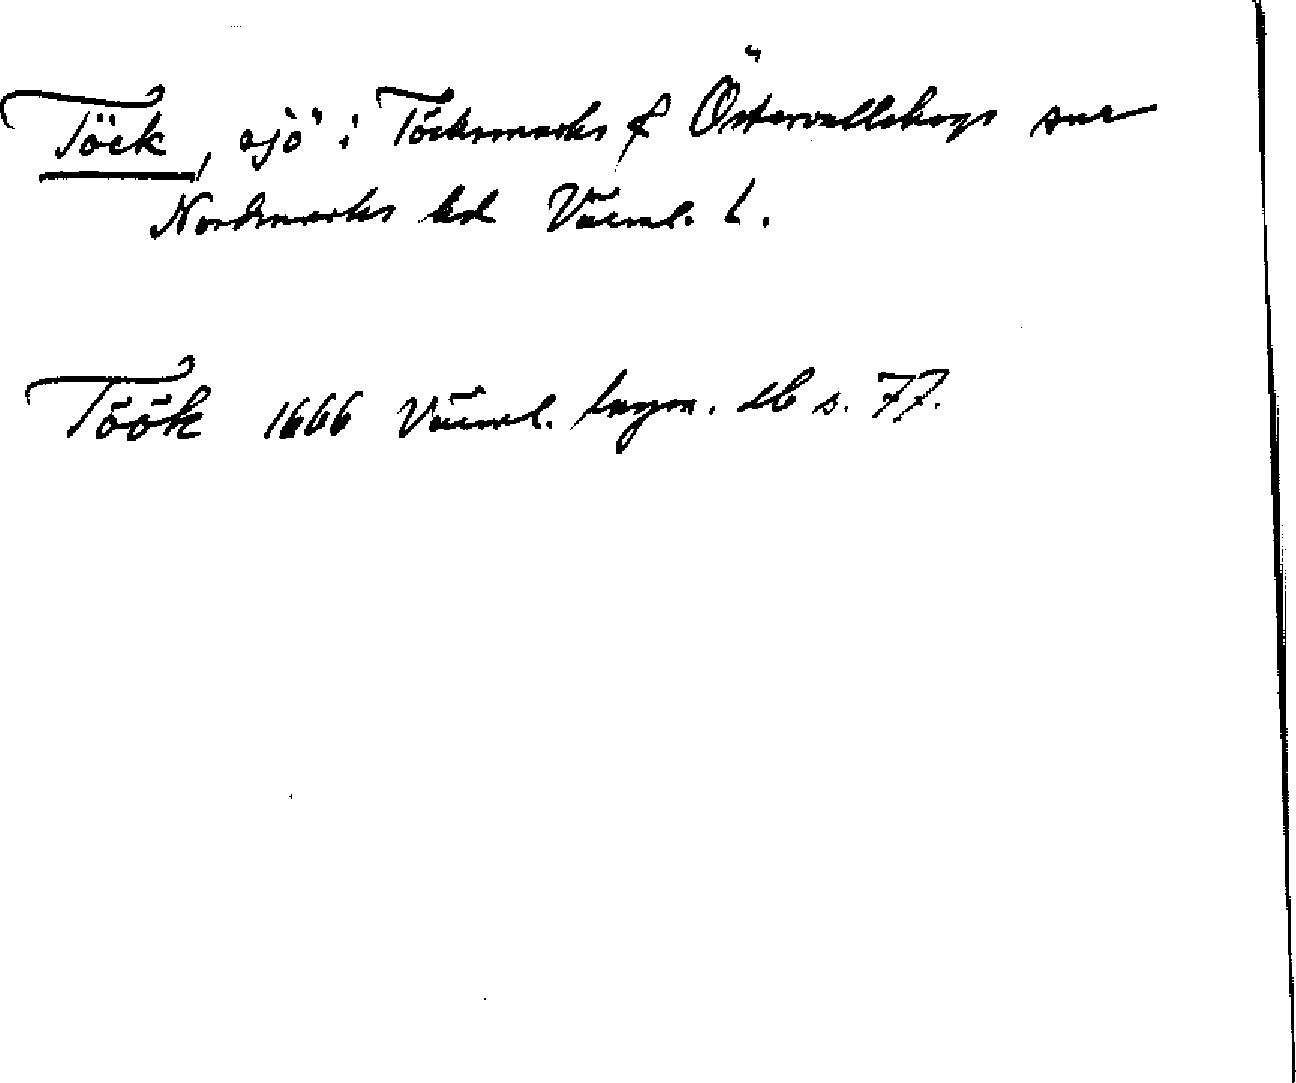 Töck, sjö i Töcksmarks & Östervallskogs snr
Nordmarks hd Värml. l.
Töök 1666 Värml. lagm. db s. 77.